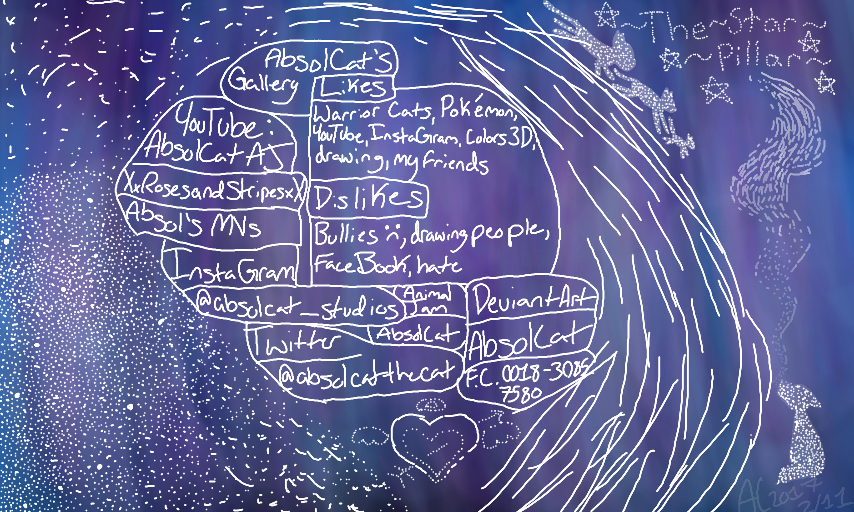 ~The~Star~
~Pillar~
AbsolCat's
Gallery
Likes
Warrior Cats, Pokémon,
YouTube, InstaGram, Colors3D,
drawing, my friends
YouTube:
AbsolCat AJ
XxRosesandStripesxX
Absol's MNs
Dislikes
Bullies :(, drawing people,
FaceBook, hate
InstaGram
@absolcat_studios
Animal
Jam
AbsolCat
DeviantArt
AbsolCat
Twitter
@absolcatthecat
F.C. 0018-3085
7580
AC 2017
2/11